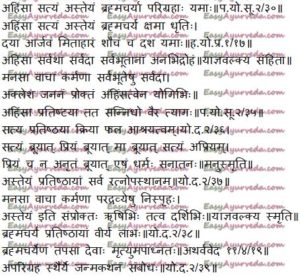 अहिंसा सत्यं अस्तेयं ब्रह्मचर्या परिग्रहाः यमाः॥प.यो.सू.२/३०॥
अहिंसा सत्यं अस्तेयं ब्रह्मचर्यं क्षमा धृतिः।
दया आर्जवं मिताहारं शौचं च दश यमाः॥ह.यो.प्र.१/१७॥
अहिंसा सर्वथा सर्वदा सर्वभूतानां अनभिद्रोहः॥याज्ञवल्क्य संहिता॥
मनसा वाचा कर्मणा सर्वभूतेषु सर्वदा।
अक्लेश जननं प्रोक्तं अहिंसत्वेन योगिभिः॥
अहिंसा प्रतिष्टया तत सन्निधो वैर त्यागः॥प.यो.सू.२/३५॥
सत्य प्रतिष्ठया क्रिया फल आश्रयत्वम्।यो.द.२/३६।
सत्यं ब्रूयात् प्रियं ब्रूयात् मा ब्रूयात् सत्यं अप्रियम्।
प्रियं च न अनृतं ब्रूयात् एषः धर्मः सनातनः॥मनुस्मृति॥
अस्तेयं प्रतिष्ठायां सर्व रत्नोपस्थानम्॥यो.द.२/३७॥
मनसा वाचा कर्मणा परद्रव्येषु निस्पृहः।
अस्तेयं इति संप्रोक्तः ऋषिभिः तत्व दर्शिभिः॥याज्ञवल्क्य स्मृति॥
ब्रह्मचर्य प्रतिष्ठायां वीर्य लाभः॥यो.द.२/३८॥
ब्रह्मचर्येण तपसा देवाः मृत्युमपाघ्नत॥अथर्ववेद ११/४/१९॥
अपरिग्रह स्थैर्ये जन्मकथन संबोधः॥यो.द.२/३९॥
EasyAyurveda.com